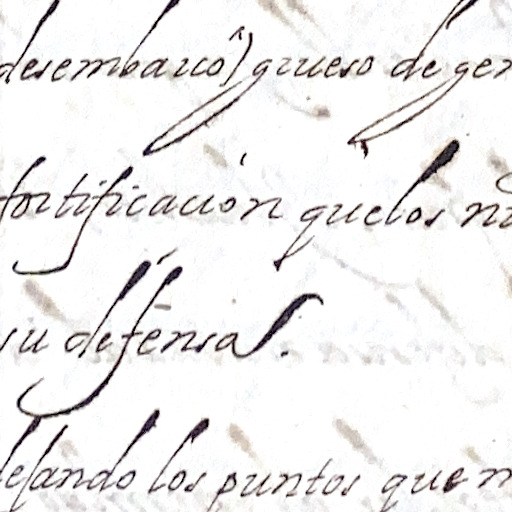 desembarcó) grueso de gen
fortificación quelos nu
su defensa.
dejando los puntos que m